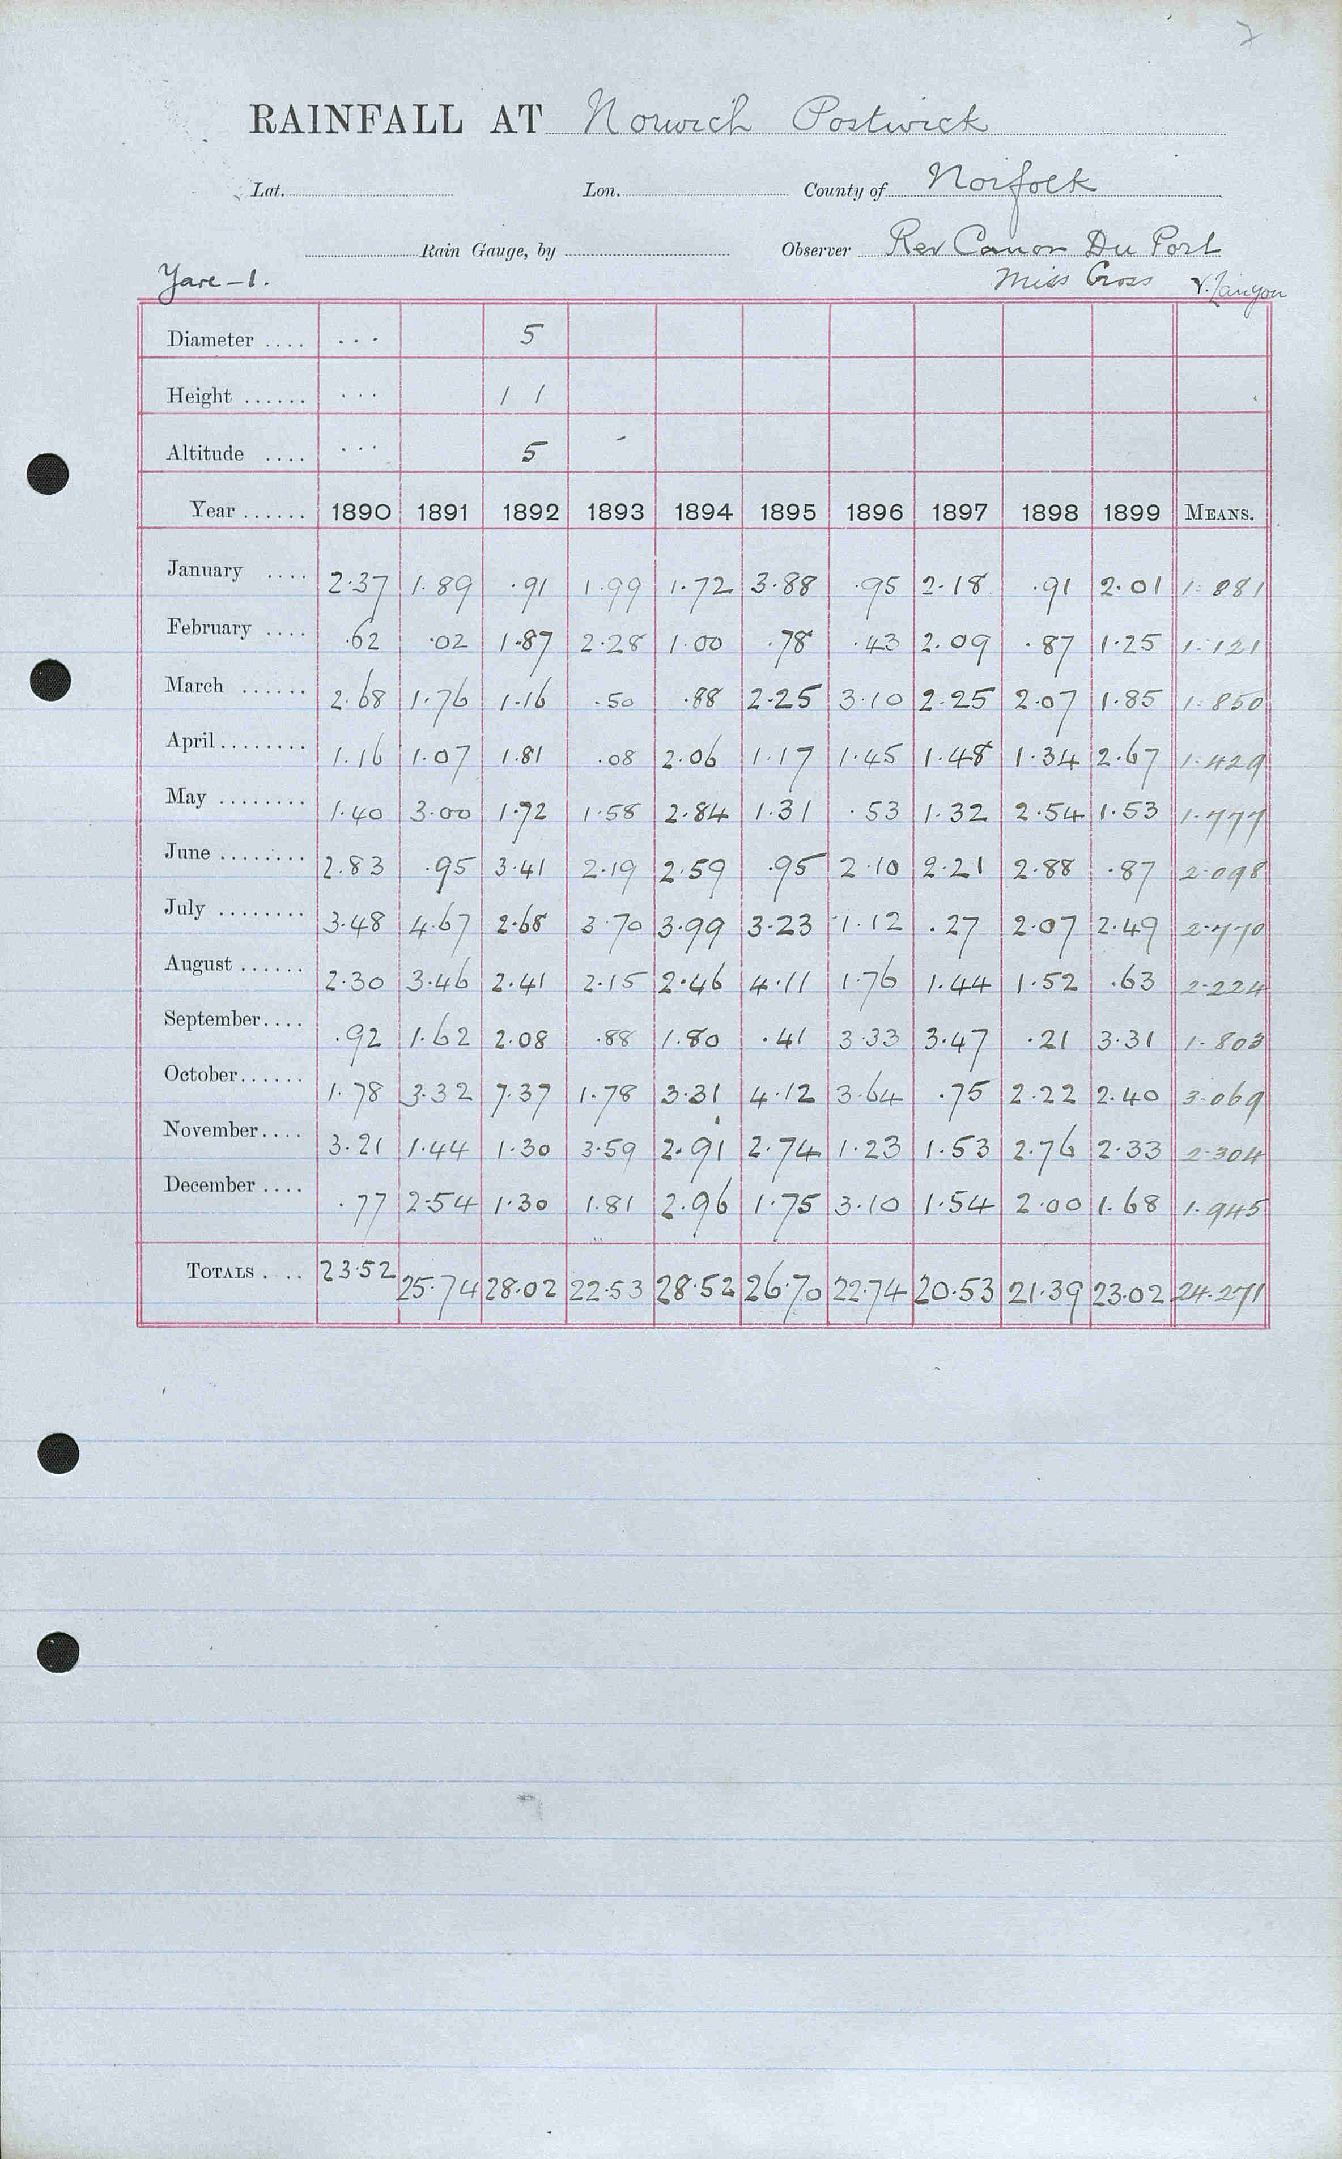 2
RAINFALL AT Norwich Postwick
Lat. Lon. County of Norfolk
Rain Gauge, by Observer Rev Canon Du Port
Yare - 1. Miss Cross
Diameter .... ... 5
Height ...... ... 1 1
Altitude .... ... 5
Year ...... 1890 1891 1892 1893 1894 1895 1896 1897 1898 1899 MEANS.
January .... 2.37 1.89 .91 1.99 1.72 3.88 .95 2.18 .91 2.01 1.881
February .... .62 .02 1.87 2.28 1.00 .78 .43 2.09 .87 1.25 1.121
March ...... 2.68 1.76 1.16 .50 .88 2.25 3.10 2.25 2.07 1.85 1.850
April ........ 1.16 1.07 1.81 .08 2.06 1.17 1.45 1.48 1.34 2.67 1.429
May ........ 1.40 3.00 1.72 1.58 2.84 1.31 .53 1.32 2.54 1.53 1.777
June ........ 2.83 .95 3.41 2.19 2.59 .95 2.10 2.21 2.88 .87 2.098
July ........ 3.48 4.67 2.68 3.70 3.99 3.23 1.12 .27 2.07 2.49 2.770
August ...... 2.30 3.46 2.41 2.15 2.46 4.11 1.76 1.44 1.52 .63 2.224
September.... .92 1.62 2.08 .88 1.80 .41 3.33 3.47 .21 3.31 1.803
October...... 1.78 3.32 7.37 1.78 3.31 4.12 3.64 .75 2.22 2.40 3.069
November.... 3.21 1.44 1.30 3.59 2.91 2.74 1.23 1.53 2.76 2.33 2.304
December .... .77 2.54 1.30 1.81 2.96 1.75 3.10 1.54 2.00 1.68 1.945
TOTALS .... 23.52 25.74 28.02 22.53 28.52 26.70 22.74 20.53 21.39 23.02 24.271